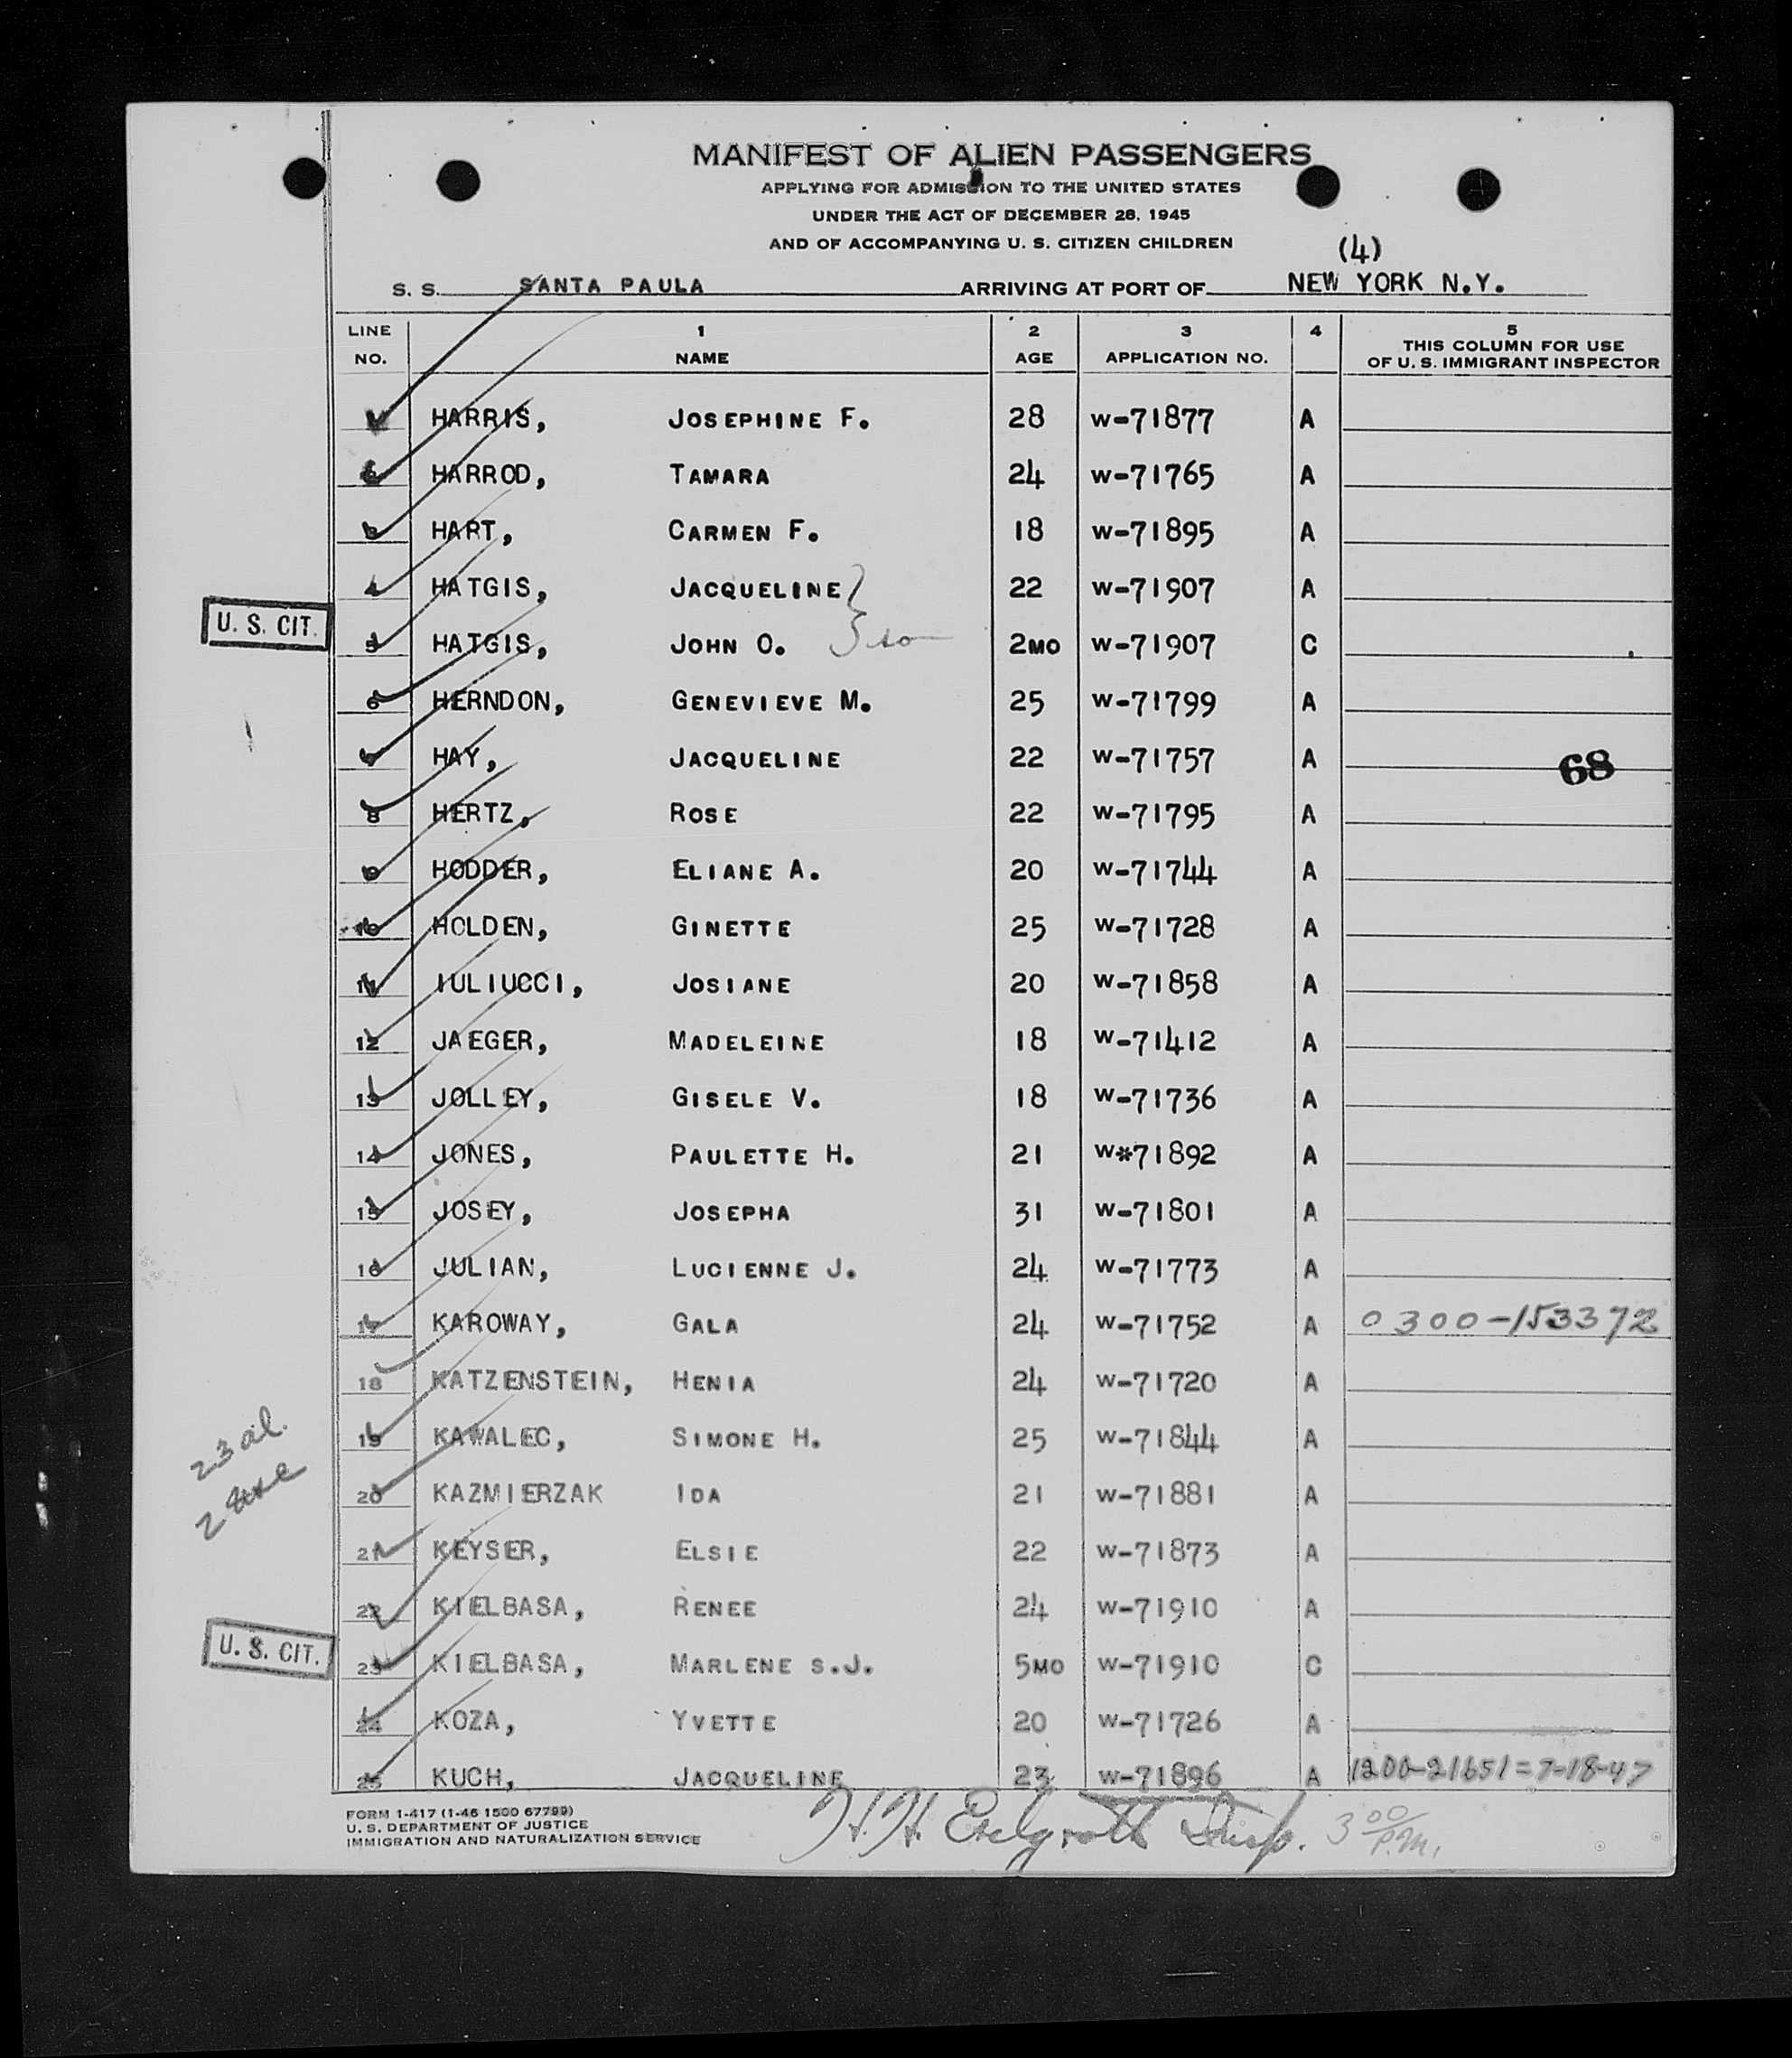 MANIFEST OF ALIEN PASSENGERS
APPLYING FOR ADMISSION TO THE UNITED STATES
UNDER THE ACT OF DECEMBER 28, 1945
AND OF ACCOMPANYING U. S. CITIZEN CHILDREN
(4)
S. S. SANTA PAULA ARRIVING AT PORT OF NEW YORK N.Y.
LINE NO. 1 NAME 2 AGE 3 APPLICATION NO. 4 5 THIS COLUMN FOR USE OF U. S. IMMIGRANT INSPECTOR
HARRIS, JOSEPHINE F. 28 W-71877 A
HARROD, TAMARA 24 W-71765 A
3 HART, CARMEN F. 18 W-71895 A
4 HATGIS, JACQUELINE 22 W-71907 A
U. S. CIT. 5 HATGIS, JOHN O. son 2MO W-71907 C
6 HERNDON, GENEVIEVE M. 25 W-71799 A
HAY, JACQUELINE 22 W-71757 A 68
8 HERTZ, ROSE 22 W-71795 A
9 HODDER, ELIANE A. 20 W-71744 A
10 HOLDEN, GINETTE 25 W-71728 A
11 IULIUCCI, JOSIANE 20 W-71858 A
12 JAEGER, MADELEINE 18 W-71412 A
13 JOLLEY, GISELE V. 18 W-71736 A
14 JONES, PAULETTE H. 21 W*71892 A
15 JOSEY, JOSEPHA 31 W-71801 A
16 JULIAN, LUCIENNE J. 24 W-71773 A
17 KAROWAY, GALA 24 W-71752 A 0300-153372
18 KATZENSTEIN, HENIA 24 W-71720 A
19 KAWALEC, SIMONE H. 25 W-71844 A
23 al.
2
20 KAZMIERZAK IDA 21 W-71881 A
21 KEYSER, ELSIE 22 W-71873 A
22 KIELBASA, RENEE 24 W-71910 A
U. S. CIT. 23 KIELBASA, MARLENE S.J. 5MO W-71910 C
24 KOZA, YVETTE 20 W-71726 A
25 KUCH, JACQUELINE 23 W-71896 A 1200-21651=7-18-47
FORM I-417 (1-46 1500 67799)
U. S. DEPARTMENT OF JUSTICE
IMMIGRATION AND NATURALIZATION SERVICE
H. H. Insp. 3 00 P.M.